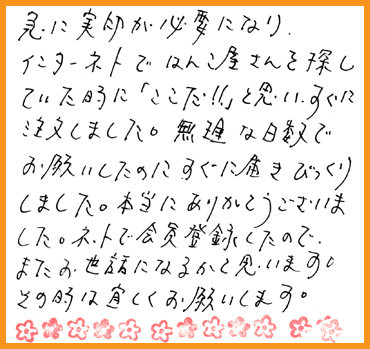 急に実印が必要になり、
インターネットではんこ屋さんを探し
ていた時に「ここだ!!」と思い、すぐに
注文しました。無理な日数で
お願いしたのにすぐに届きびっくり
しました。本当にありがとうございま
した。ネットで会員登録したので、
またお世話になるかと思います。
その時は宜しくお願いします。